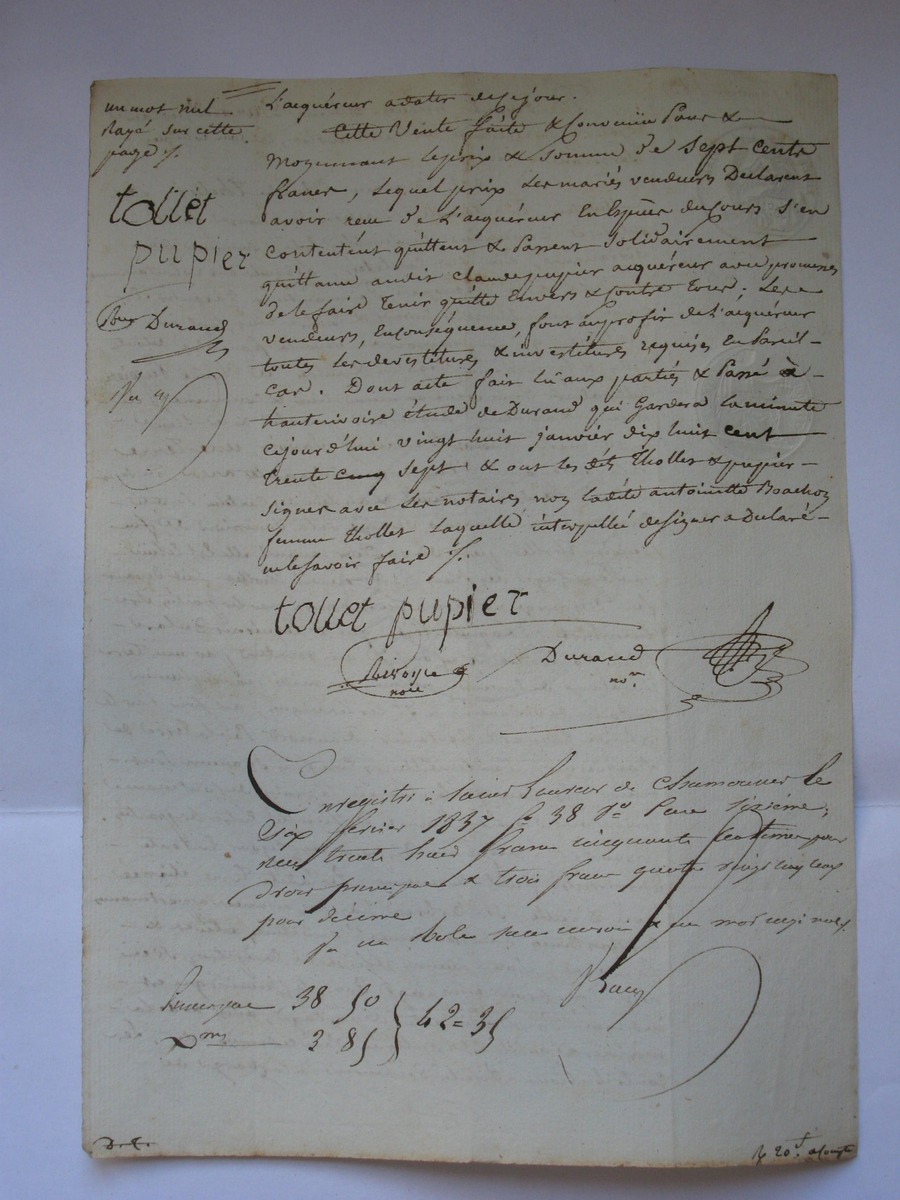 un mot nul
Rayé sur cette
page ./.
tollet
pupier
Durand
L'acquéreur a dater de ce jour.
Cette Vente faite & Convenüe Pour &
Moyennant le prix & Somme de sept cents
francs, lequel prix Les mariés vendeurs Declarent
avoir reçu de L'acquéreur En Espèces du Cours s'en
contentent quittent & Passent Solidairement
quittance audit claude pupier acquéreur avec promesses
de le faire Tenir quitte Envers & Contre Tous. Les
vendeurs, En conséquence, font au profit de L'acquéreur
toutes Les devestitures & investitures requises En Pareil
cas. Dont acte fait lû aux parties & Passé à
hauterivoire étude de Durand qui Gardera la minute
cejourd'hui vingt huit janvier dix huit cent
trente cinq sept & ont les dits thollet & pupier
signer avec Les notaires non ladite antoinette
femme thollet laquelle interpellée de signer a Declaré
ne le savoir faire ./.
tollet pupier
Durand
nore
Enregistré à Saint Laurent de Chamousset le
six février 1837 fo 38 Vo Case sixième
reçu trente huit francs cinquante centimes pour
droit principal & trois francs quatre vingt cinq cent
pour décime
un Role sans renvoi & un mot rayé nul
Principal 38 50
Dme 3 85 } 42=35